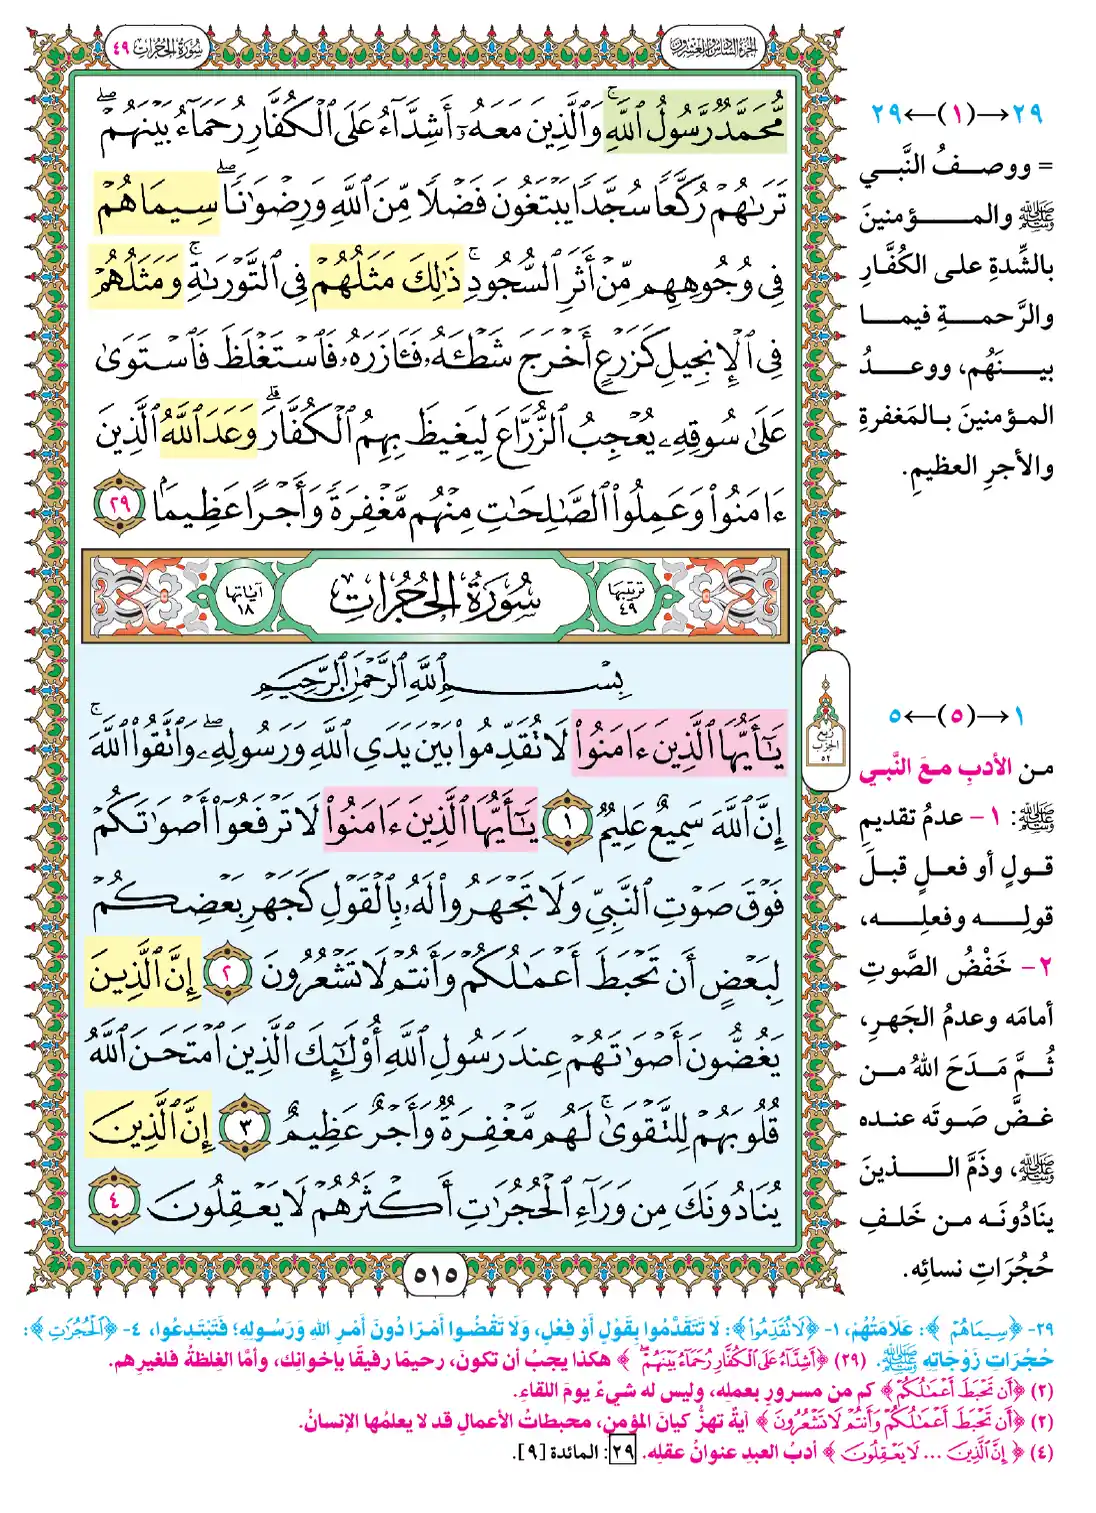 الجزء السادس والعشرون
سورة الحجرات ٤٩
مُّحَمَّدٌ رَّسُولُ ٱللَّهِ ۚ وَٱلَّذِينَ مَعَهُۥٓ أَشِدَّآءُ عَلَى ٱلْكُفَّارِ رُحَمَآءُ بَيْنَهُمْ ۖ
تَرَىٰهُمْ رُكَّعًا سُجَّدًا يَبْتَغُونَ فَضْلًا مِّنَ ٱللَّهِ وَرِضْوَٰنًا ۖ سِيمَاهُمْ
فِى وُجُوهِهِم مِّنْ أَثَرِ ٱلسُّجُودِ ۚ ذَٰلِكَ مَثَلُهُمْ فِى ٱلتَّوْرَىٰةِ ۚ وَمَثَلُهُمْ
فِى ٱلْإِنجِيلِ كَزَرْعٍ أَخْرَجَ شَطْـَٔهُۥ فَـَٔازَرَهُۥ فَٱسْتَغْلَظَ فَٱسْتَوَىٰ
عَلَىٰ سُوقِهِۦ يُعْجِبُ ٱلزُّرَّاعَ لِيَغِيظَ بِهِمُ ٱلْكُفَّارَ ۗ وَعَدَ ٱللَّهُ ٱلَّذِينَ
ءَامَنُوا۟ وَعَمِلُوا۟ ٱلصَّٰلِحَٰتِ مِنْهُم مَّغْفِرَةً وَأَجْرًا عَظِيمًۢا ٢٩
ترتيبها ٤٩
سُورَةُ الحُجُرَاتِ
آياتها ١٨
بِسْمِ ٱللَّهِ ٱلرَّحْمَٰنِ ٱلرَّحِيمِ
يَٰٓأَيُّهَا ٱلَّذِينَ ءَامَنُوا۟ لَا تُقَدِّمُوا۟ بَيْنَ يَدَىِ ٱللَّهِ وَرَسُولِهِۦ ۖ وَٱتَّقُوا۟ ٱللَّهَ ۚ
إِنَّ ٱللَّهَ سَمِيعٌ عَلِيمٌ ١ يَٰٓأَيُّهَا ٱلَّذِينَ ءَامَنُوا۟ لَا تَرْفَعُوٓا۟ أَصْوَٰتَكُمْ
فَوْقَ صَوْتِ ٱلنَّبِىِّ وَلَا تَجْهَرُوا۟ لَهُۥ بِٱلْقَوْلِ كَجَهْرِ بَعْضِكُمْ
لِبَعْضٍ أَن تَحْبَطَ أَعْمَٰلُكُمْ وَأَنتُمْ لَا تَشْعُرُونَ ٢ إِنَّ ٱلَّذِينَ
يَغُضُّونَ أَصْوَٰتَهُمْ عِندَ رَسُولِ ٱللَّهِ أُو۟لَٰٓئِكَ ٱلَّذِينَ ٱمْتَحَنَ ٱللَّهُ
قُلُوبَهُمْ لِلتَّقْوَىٰ ۚ لَهُم مَّغْفِرَةٌ وَأَجْرٌ عَظِيمٌ ٣ إِنَّ ٱلَّذِينَ
يُنَادُونَكَ مِن وَرَآءِ ٱلْحُجُرَٰتِ أَكْثَرُهُمْ لَا يَعْقِلُونَ ٤
٥١٥
٢٩←(١)→٢٩
= ووصفُ النَّبي
ﷺ والمؤمنينَ
بالشِّدةِ على الكُفَّارِ
والرَّحمةِ فيما
بينَهُم، ووعدُ
المؤمنينَ بالمَغفرةِ
والأجرِ العظيمِ.
ربع
الحزب
٥٢
١←(٥)→٥
من الأدبِ معَ النَّبي
ﷺ: ١- عدمُ تقديمِ
قولٍ أو فعلٍ قبلَ
قولِه وفعلِه،
٢- خَفْضُ الصَّوتِ
أمامَه وعدمُ الجَهرِ،
ثُمَّ مَدَحَ اللهُ من
غضَّ صَوتَه عنده
ﷺ، وذَمَّ الذينَ
ينَادُونَه من خَلفِ
حُجُرَاتِ نسائِه.
٢٩- ﴿سِيمَاهُمْ﴾: عَلَامَتُهُمْ، ١- ﴿لَا تُقَدِّمُوا۟﴾: لَا تَتَقَدَّمُوا بِقَوْلٍ أَوْ فِعْلٍ، وَلَا تَقْضُوا أَمْرًا دُونَ أَمْرِ اللهِ وَرَسُولِهِ؛ فَتَبْتَدِعُوا، ٤- ﴿ٱلْحُجُرَٰتِ﴾:
حُجُرَاتِ زَوْجَاتِهِ ﷺ. (٢٩) ﴿أَشِدَّآءُ عَلَى ٱلْكُفَّارِ رُحَمَآءُ بَيْنَهُمْ ۖ﴾ هكذا يجبُ أن تكونَ، رحيمًا رفيقًا بإخوانِك، وأمَّا الغِلظةُ فلغيرِهم.
(٢) ﴿أَن تَحْبَطَ أَعْمَٰلُكُمْ﴾ كم من مسرورٍ بعملِه، وليس له شيءٌ يومَ اللقاءِ.
(٢) ﴿أَن تَحْبَطَ أَعْمَٰلُكُمْ وَأَنتُمْ لَا تَشْعُرُونَ﴾ آيةٌ تهزُّ كيانَ المؤمنِ، محبطاتُ الأعمالِ قد لا يعلمُها الإنسانُ.
(٤) ﴿إِنَّ ٱلَّذِينَ ... لَا يَعْقِلُونَ﴾ أدبُ العبدِ عنوانُ عقلِه. ٢٩: المائدة [٩].